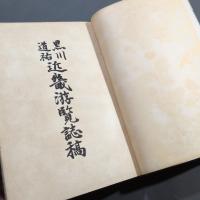 黒川道祐近畿游覧誌稿